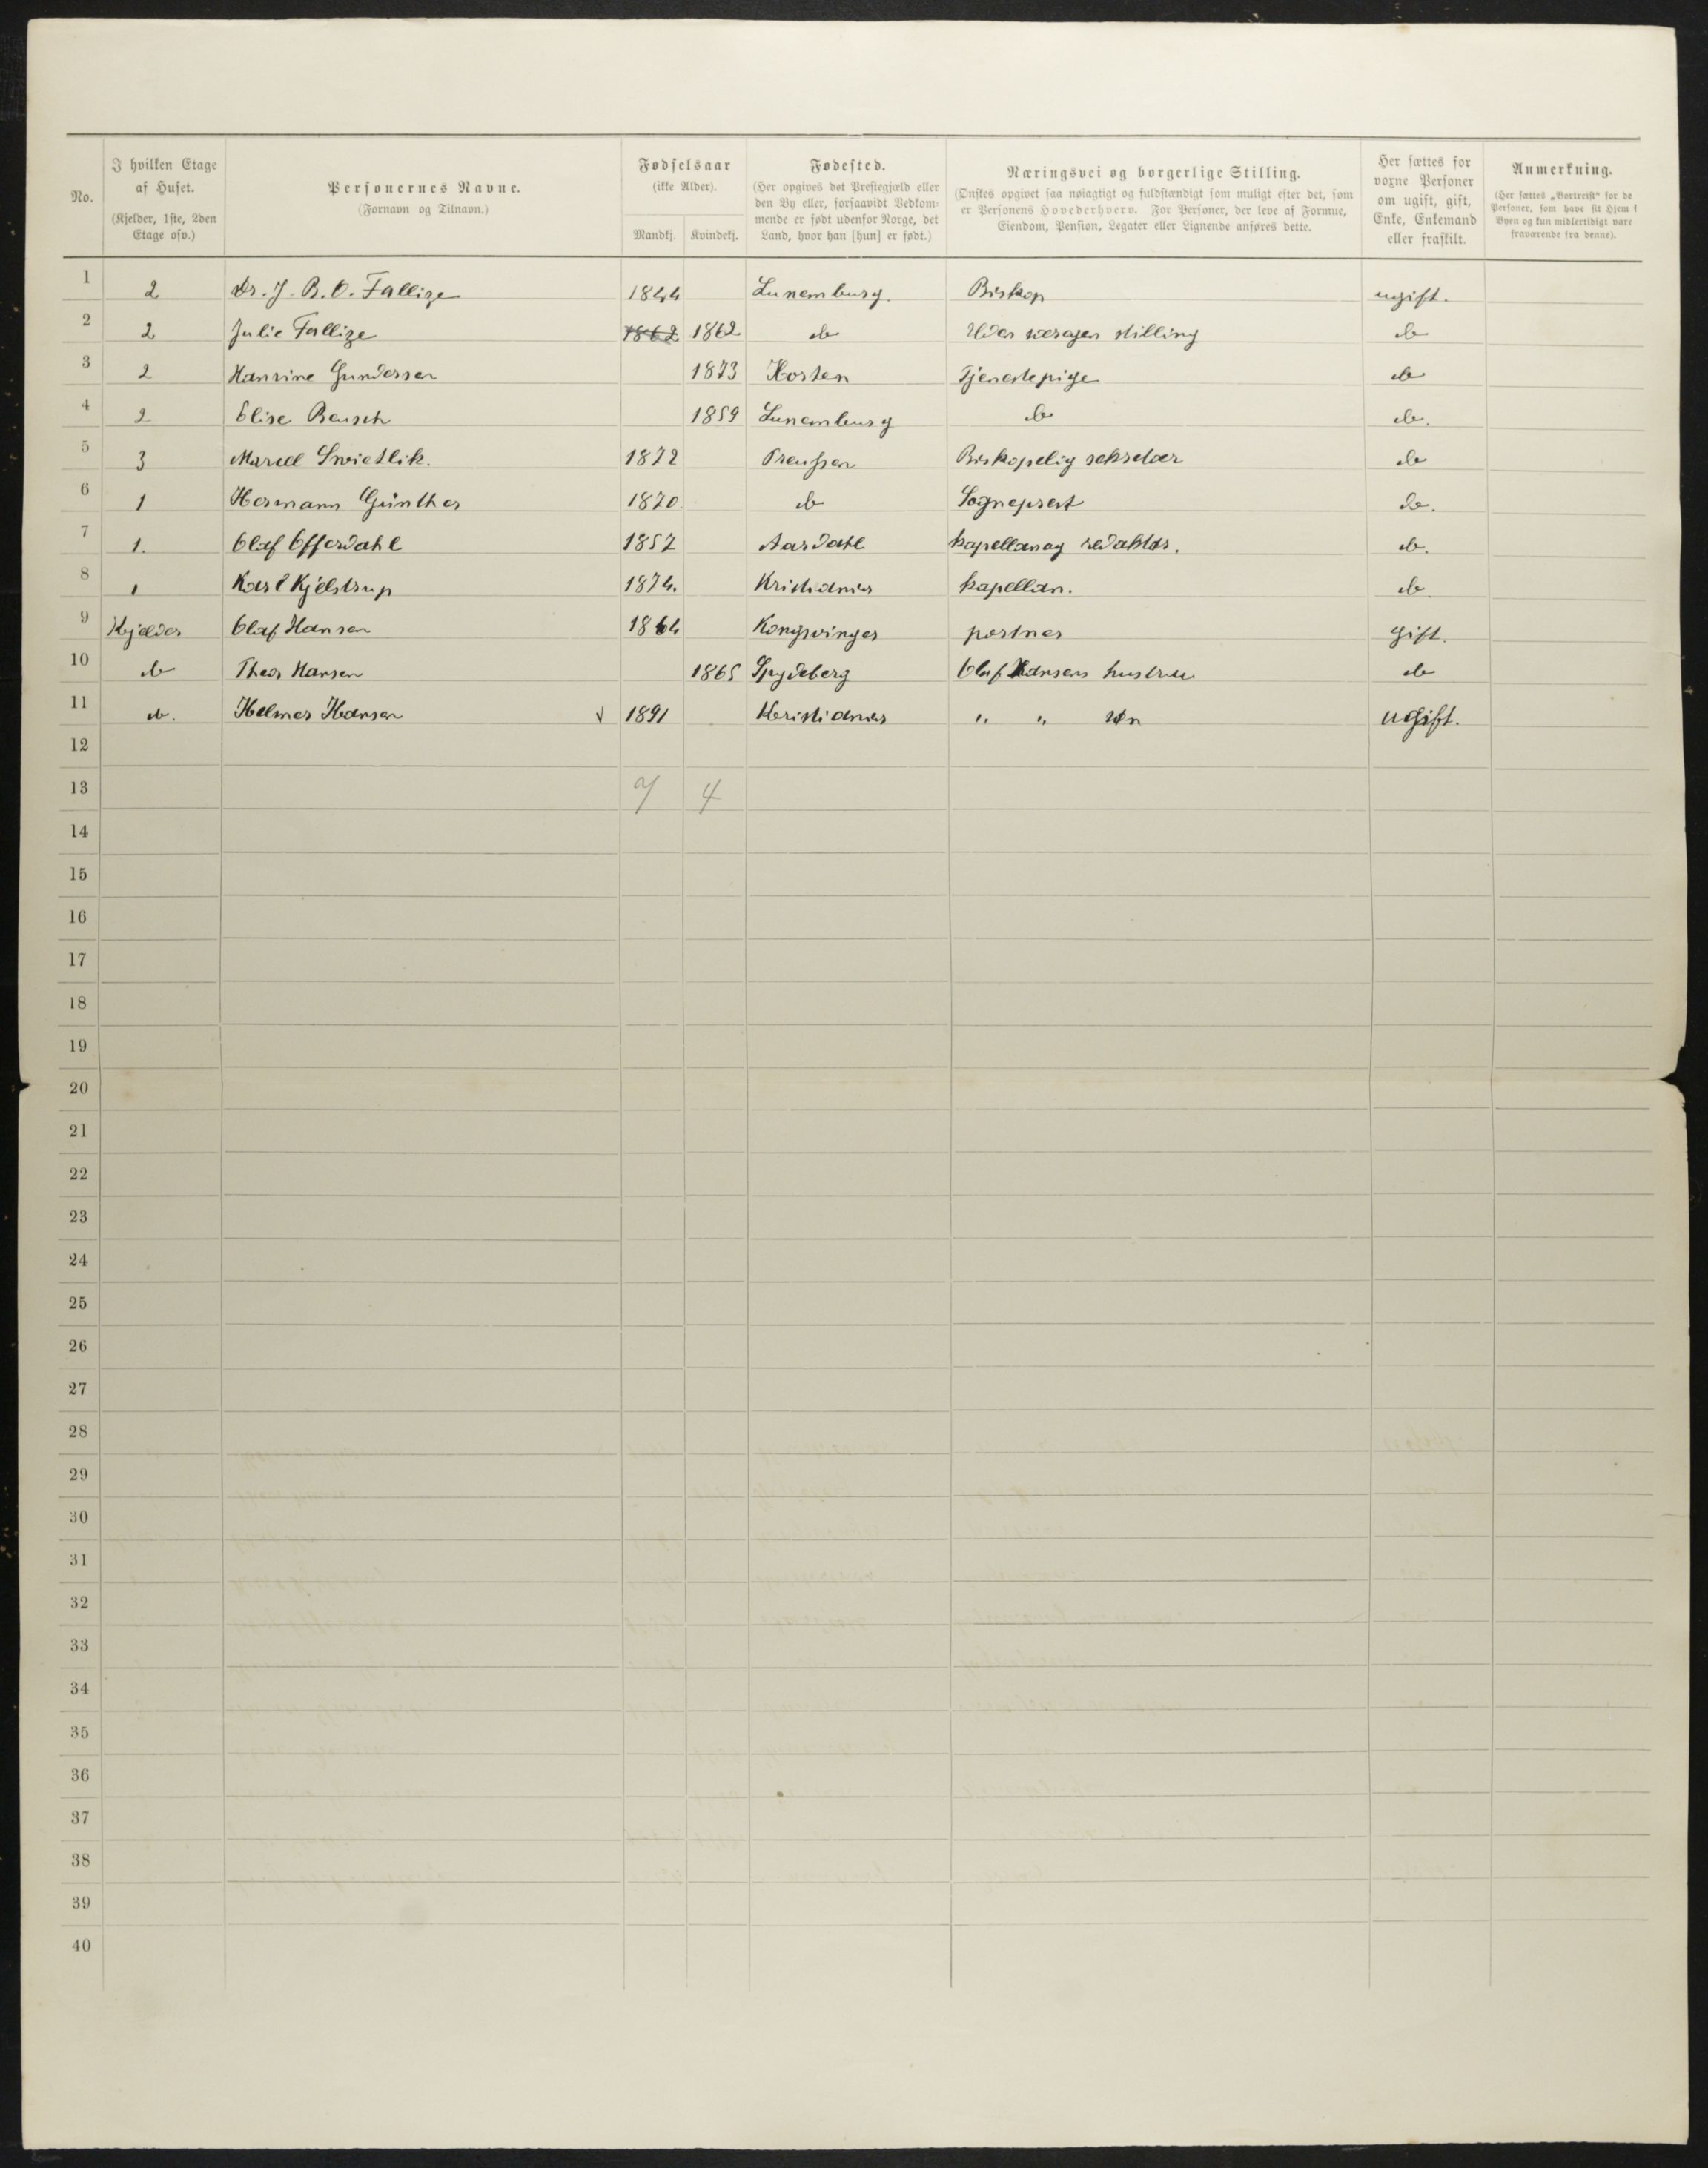 No.
I hvilken Etage af Huset.
(Kjelder, 1ste, 2den Etage osv.)
Personernes Navne.
(Fornavn og Tilnavn.)
Fødselsaar
(ikke Alder).
Mandkj. Kvindekj.
Fødested.
(Her opgives det Prestegjæld eller
den By eller, forsaavidt Vedkom-
mende er født udenfor Norge, det
Land, hvor han [hun] er født.)
Næringsvei og borgerlige Stilling.
(Ønskes opgivet saa nøiagtigt og fuldstændigt som muligt efter det, som
er Personens Hovederhverv. For Personer, der leve af Formue,
Eiendom, Pension, Legater eller Lignende anføres dette.
Her sættes for
voxne Personer
om ugift, gift,
Enke, Enkemand
eller fraskilt.
Anmerkning.
(Her sættes „Bortreist" for de
Personer, som have sit Hjem i
Byen og kun midlertidigt vare
fraværende fra denne).
1 2 Dr. J. B. O. Fallize 1844 Luxemburg. Biskop ugift.
2 2 Julie Fallize 1862 1862 do Uden stilling do
3 2 Hansine Gundersen 1873 Horten Tjenestepige do
4 2 Elise Reusch 1859 Luxemburg do do.
5 3 Marcel Swietlik. 1872 Preussen Biskopelig sekretær do
6 1 Hermann Günther 1870. do Sogneprest do.
7 1. Olaf Offerdahl 1857 Aardahl kapellan og redaktør. do.
8 1 Karl Kjelstrup 1874. Kristiania kapellan. do.
9 Kjelder Olaf Hansen 1864 Kongsvinger portner gift.
10 do Thea Hansen 1865 Spydeberg Olaf Hansens hustru do
11 do. Helmer Hansen √ 1891 Kristiania " " søn ugift.
12
13 7 4
14
15
16
17
18
19
20
21
22
23
24
25
26
27
28
29
30
31
32
33
34
35
36
37
38
39
40